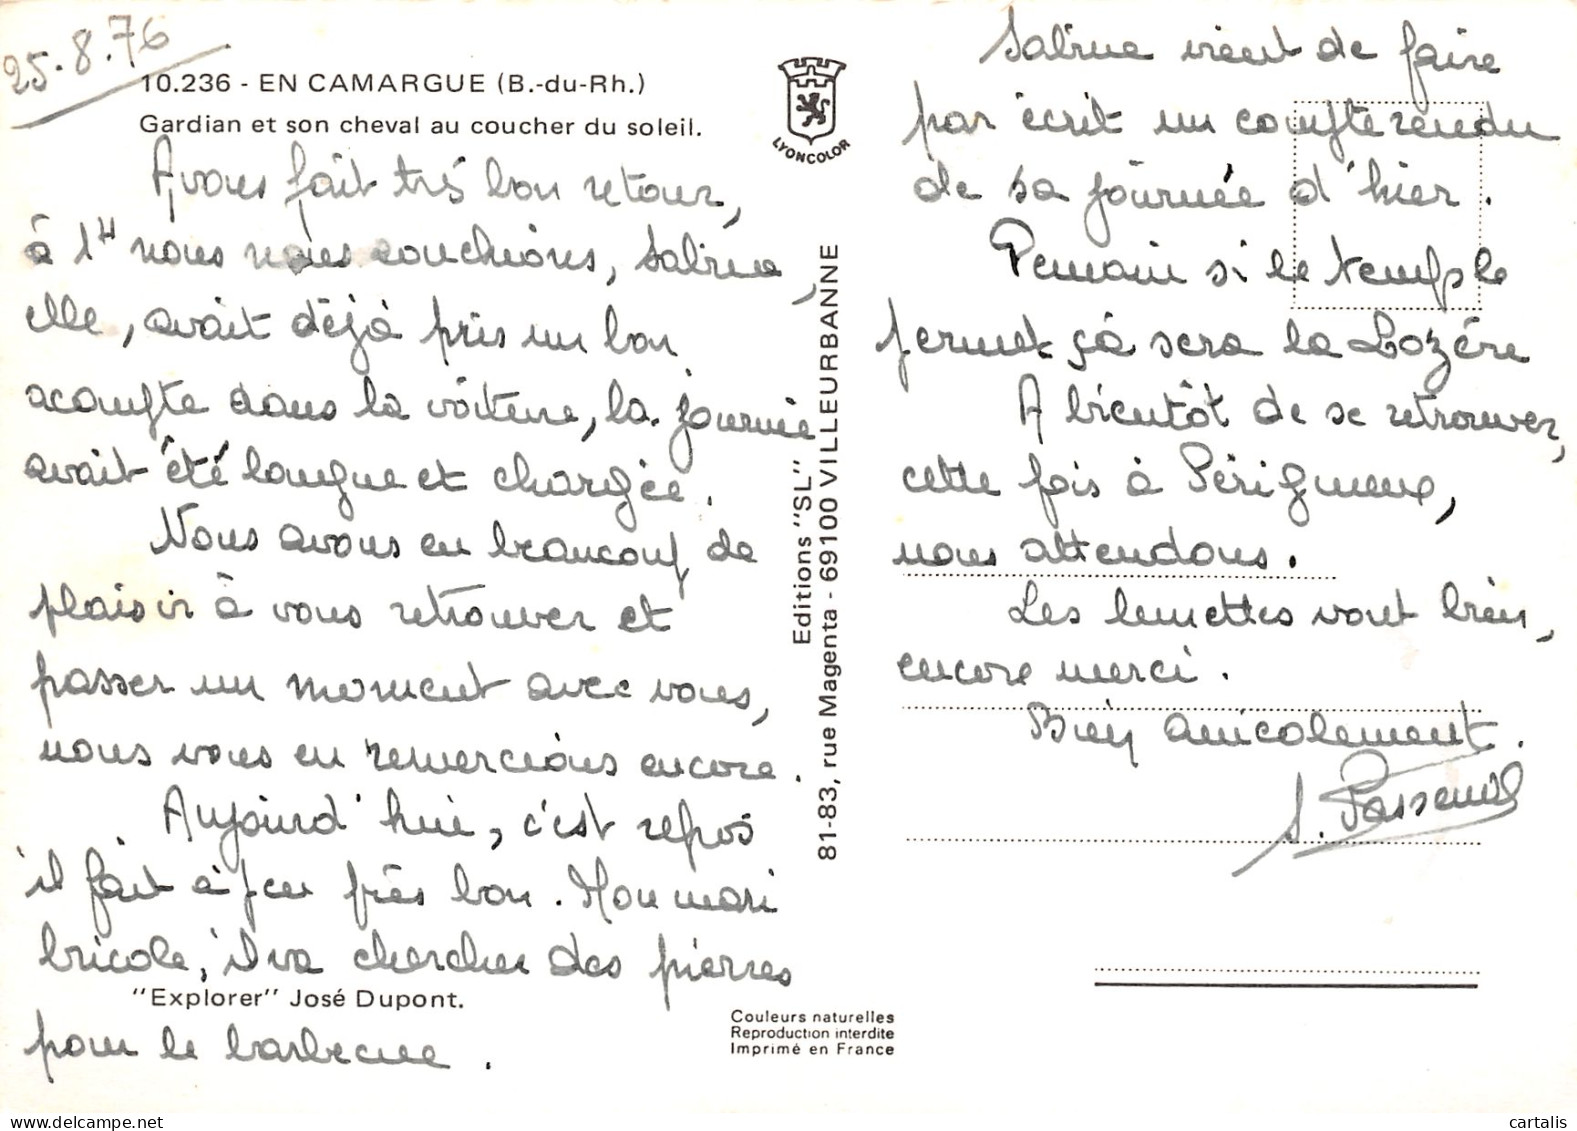 25.8.76
10.236 - EN CAMARGUE (B.-du-Rh.)
Gardian et son cheval au coucher du soleil.
LYONCOLOR
Avons fait très bon retour,
à 1H nous nous couchions, Sabrina,
elle, avait déjà pris un bon
acompte dans la voiture, la journée
avait été longue et chargée.
Nous avons eu beaucoup de
plaisir à vous retrouver et
passer un moment avec vous,
nous vous en remercions encore.
Aujourd'hui, c'est repos
il fait à peu près bon. Mon mari
bricole, il va chercher des pierres
"Explorer" José Dupont.
pour le barbecue.
Editions "SL"
81-83, rue Magenta - 69100 VILLEURBANNE
Couleurs naturelles
Reproduction interdite
Imprimé en France
Sabrina vient de faire
par écrit un compte rendu
de sa journée d'hier.
Demain si le temps le
permet çà sera la Lozère
A bientôt de se retrouver,
cette fois à Périgueux,
nous attendons.
Les lunettes vont bien,
encore merci.
Bien amicalement.
cartalis